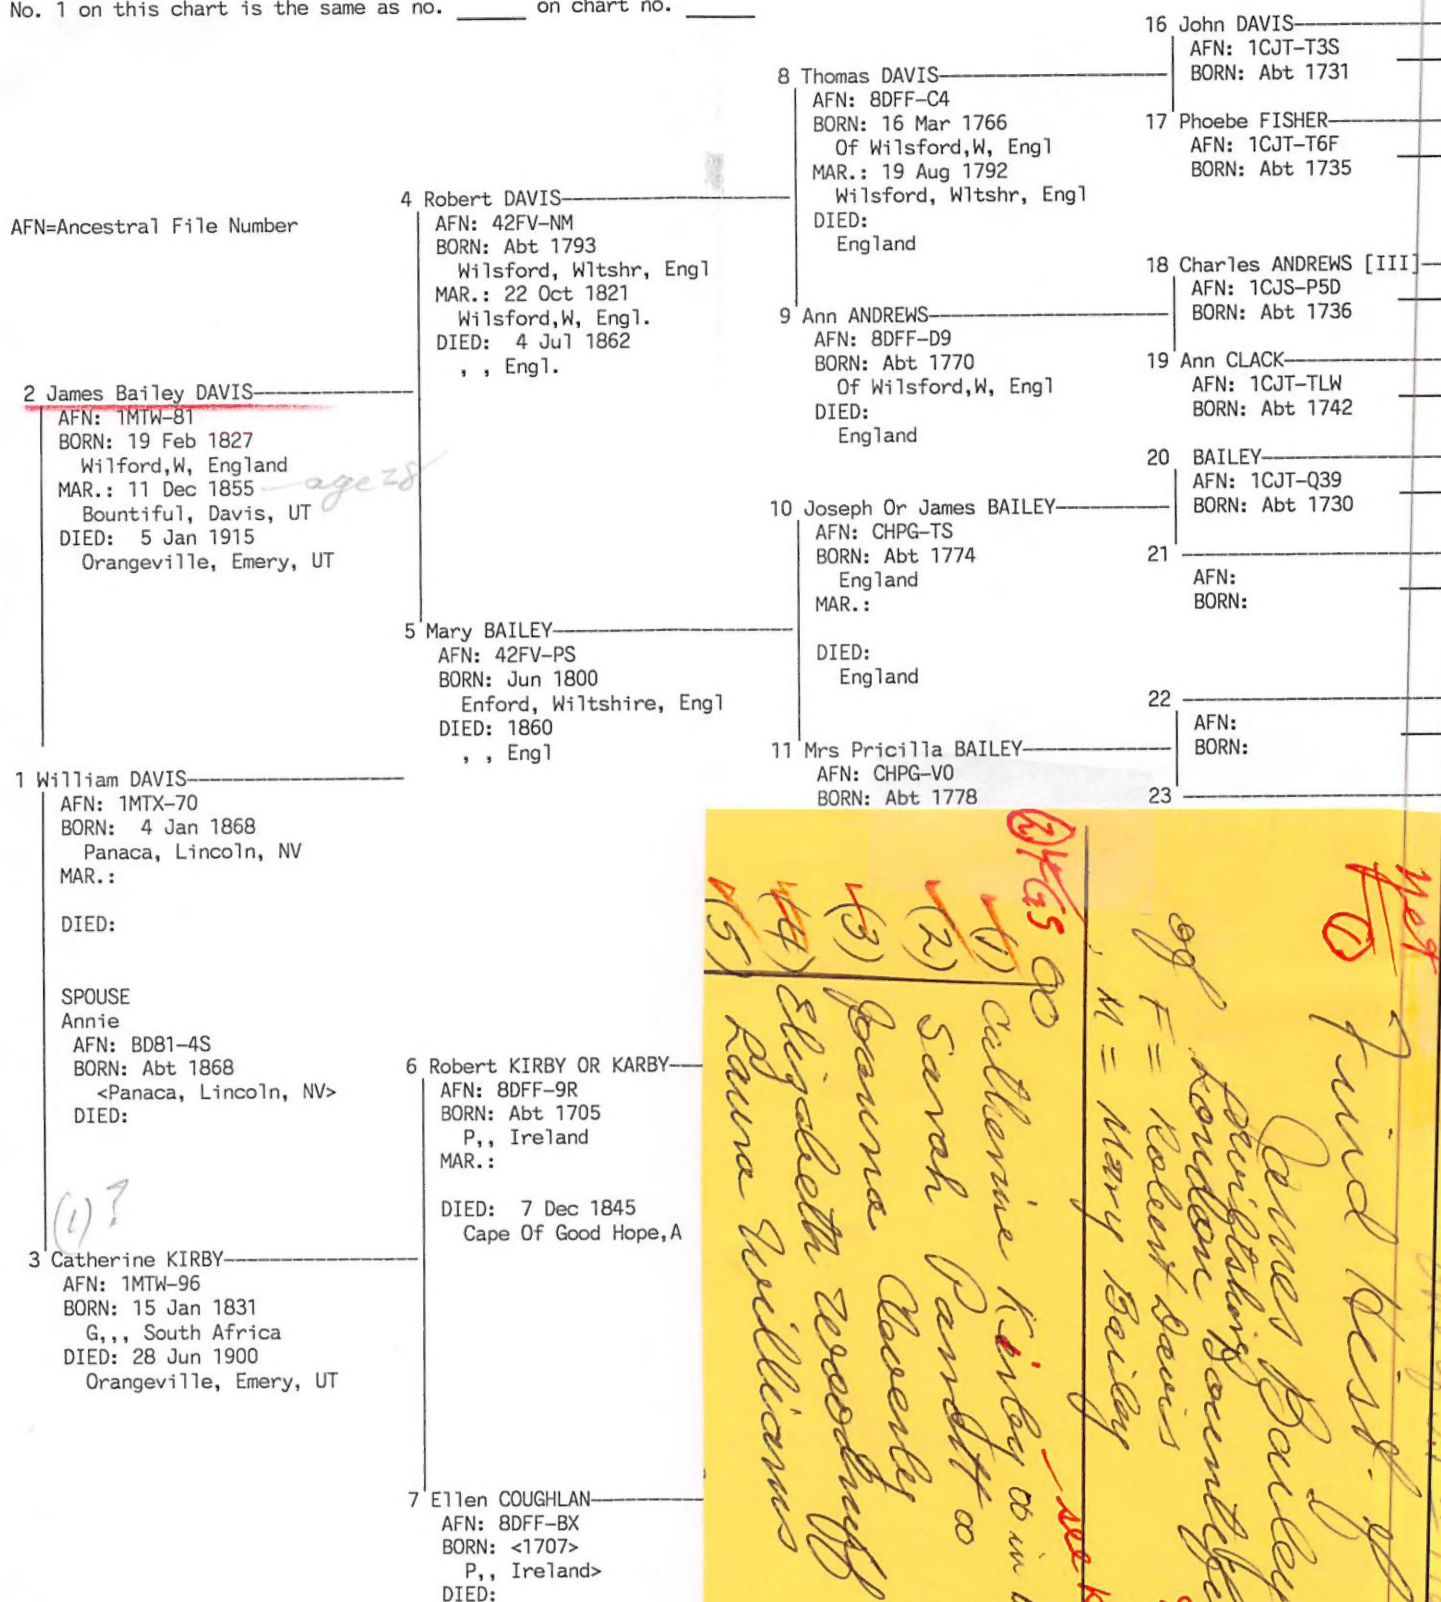 No. 1 on this chart is the same as no. ______ on chart no. ______
AFN=Ancestral File Number
2 James Bailey DAVIS
AFN: 1MTW-81
BORN: 19 Feb 1827
Wilford,W, England
MAR.: 11 Dec 1855 — age 28
Bountiful, Davis, UT
DIED: 5 Jan 1915
Orangeville, Emery, UT
1 William DAVIS
AFN: 1MTX-70
BORN: 4 Jan 1868
Panaca, Lincoln, NV
MAR.:
DIED:
SPOUSE
Annie
AFN: BD81-4S
BORN: Abt 1868
<Panaca, Lincoln, NV>
DIED:
(1) ?
3 Catherine KIRBY
AFN: 1MTW-96
BORN: 15 Jan 1831
G,,, South Africa
DIED: 28 Jun 1900
Orangeville, Emery, UT
4 Robert DAVIS
AFN: 42FV-NM
BORN: Abt 1793
Wilsford, Wltshr, Engl
MAR.: 22 Oct 1821
Wilsford,W, Engl.
DIED: 4 Jul 1862
, , Engl.
5 Mary BAILEY
AFN: 42FV-PS
BORN: Jun 1800
Enford, Wiltshire, Engl
DIED: 1860
, , Engl
6 Robert KIRBY OR KARBY
AFN: 8DFF-9R
BORN: Abt 1705
P,, Ireland
MAR.:
DIED: 7 Dec 1845
Cape Of Good Hope,A
7 Ellen COUGHLAN
AFN: 8DFF-BX
BORN: <1707>
P,, Ireland>
DIED:
8 Thomas DAVIS
AFN: 8DFF-C4
BORN: 16 Mar 1766
Of Wilsford,W, Engl
MAR.: 19 Aug 1792
Wilsford, Wltshr, Engl
DIED:
England
9 Ann ANDREWS
AFN: 8DFF-D9
BORN: Abt 1770
Of Wilsford,W, Engl
DIED:
England
10 Joseph Or James BAILEY
AFN: CHPG-TS
BORN: Abt 1774
England
MAR.:
DIED:
England
11 Mrs Pricilla BAILEY
AFN: CHPG-V0
BORN: Abt 1778
16 John DAVIS
AFN: 1CJT-T3S
BORN: Abt 1731
17 Phoebe FISHER
AFN: 1CJT-T6F
BORN: Abt 1735
18 Charles ANDREWS [III]
AFN: 1CJS-P5D
BORN: Abt 1736
19 Ann CLACK
AFN: 1CJT-TLW
BORN: Abt 1742
20 BAILEY
AFN: 1CJT-Q39
BORN: Abt 1730
21
AFN:
BORN:
22
AFN:
BORN:
23
(1) Find Hist. of
James Bailey
of London
F = Robert Davis
M = Mary Bailey
(2)
(1) Catherine Kirby ∞ in — see
(2) Sarah Pandit ∞
(3) Joanna
(4) Elizabeth Woodruff
(5) Laura Williams